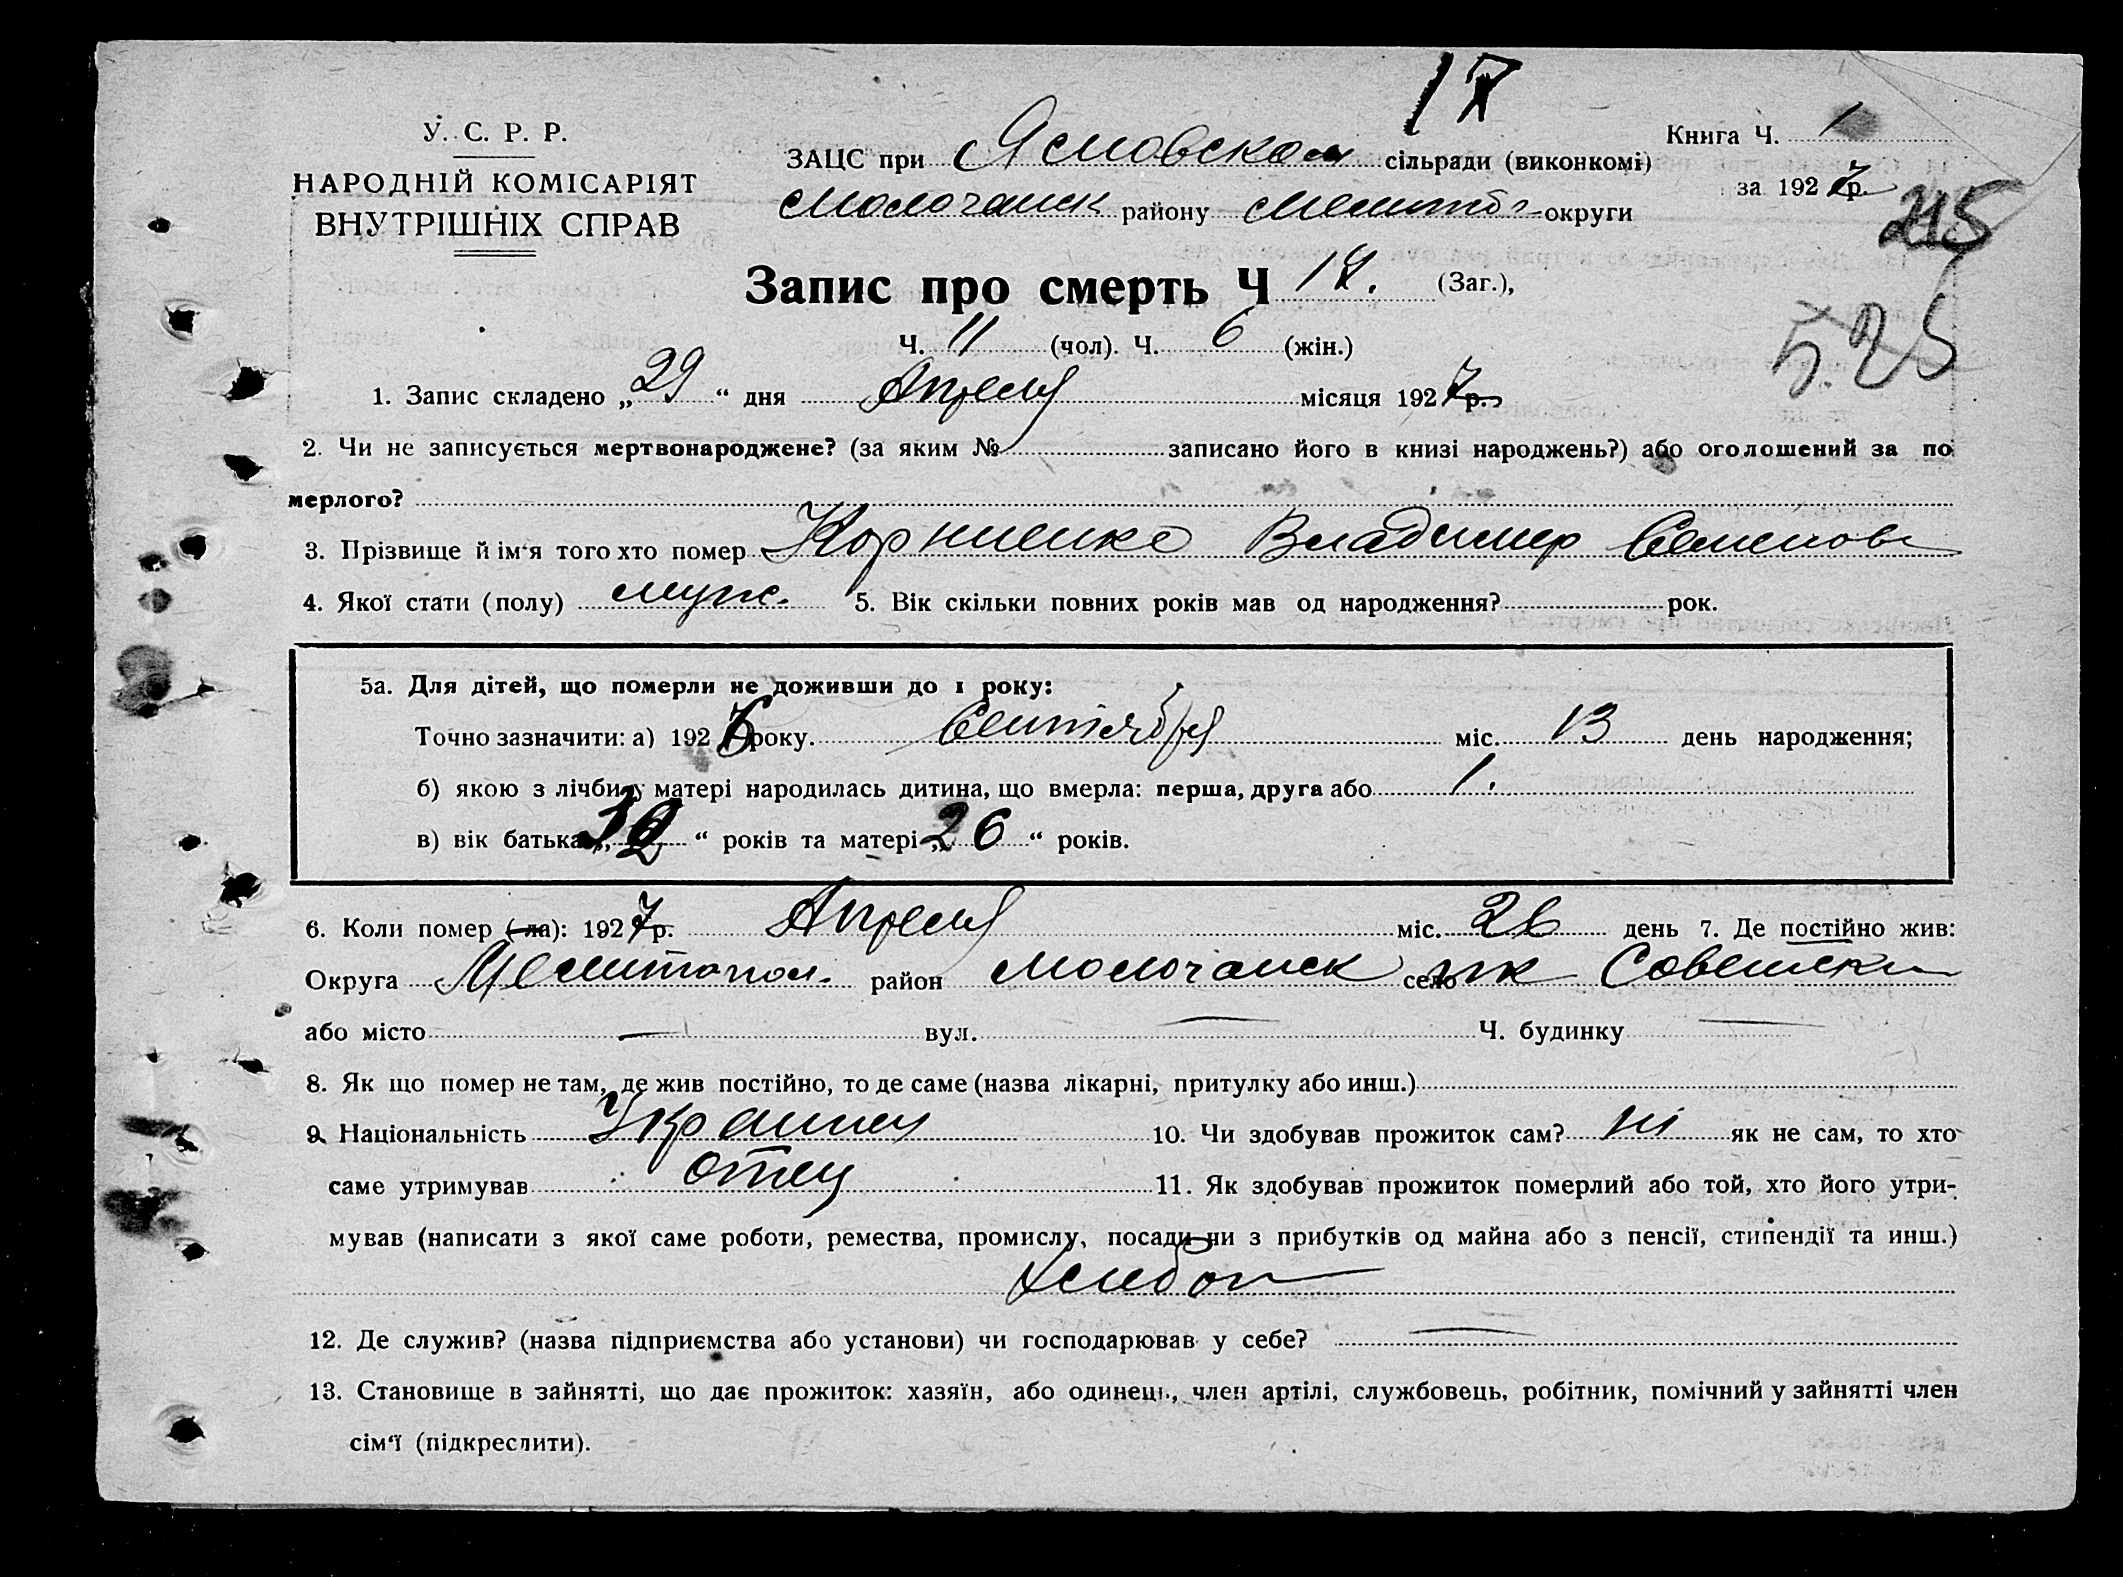 17
У. С. Р. Р.
НАРОДНІЙ КОМІСАРІЯТ
ВНУТРІШНІХ СПРАВ
ЗАЦС при Ясмовском сільради (виконкомі)
Молочанск району Мелитоп округи
Книга Ч. 1
за 1927 р.
215
525
Запис про смерть Ч 17. (Заг.),
Ч. 11 (чол). Ч. 6 (жін.)
1. Запис складено „29“ дня Апреля місяця 1927 р.
2. Чи не записується мертвонароджене? (за яким № записано його в книзі народжень?) або оголошений за по
мерлого?
3. Прізвище й ім‘я того хто помер Корниенко Владимир Семенов
4. Якої стати (полу) муж. 5. Вік скільки повних років мав од народження? рок.
5а. Для дітей, що померли не доживши до 1 року:
Точно зазначити: а) 1926 року. Сентября міс. 13 день народження;
б) якою з лічби у матері народилась дитина, що вмерла: перша, друга або 1.
в) вік батька „32“ років та матері „26“ років.
6. Коли помер (-ла): 1927 р. Апреля міс. 26 день 7. Де постійно жив:
Округа Мелитопол. район Молочанск село
або місто — вул. — Ч. будинку —
8. Як що помер не там, де жив постійно, то де саме (назва лікарні, притулку або инш.)
9. Національність Украинец 10. Чи здобував прожиток сам? ні як не сам, то хто
саме утримував отец 11. Як здобував прожиток померлий або той, хто його утри-
мував (написати з якої саме роботи, ремества, промислу, посади чи з прибутків од майна або з пенсії, стипендії та инш.)
Хлебоп
12. Де служив? (назва підприємства або установи) чи господарював у себе? —
13. Становище в зайнятті, що дає прожиток: хазяїн, або одинець, член артілі, службовець, робітник, помічний у зайнятті член
сім‘ї (підкреслити).